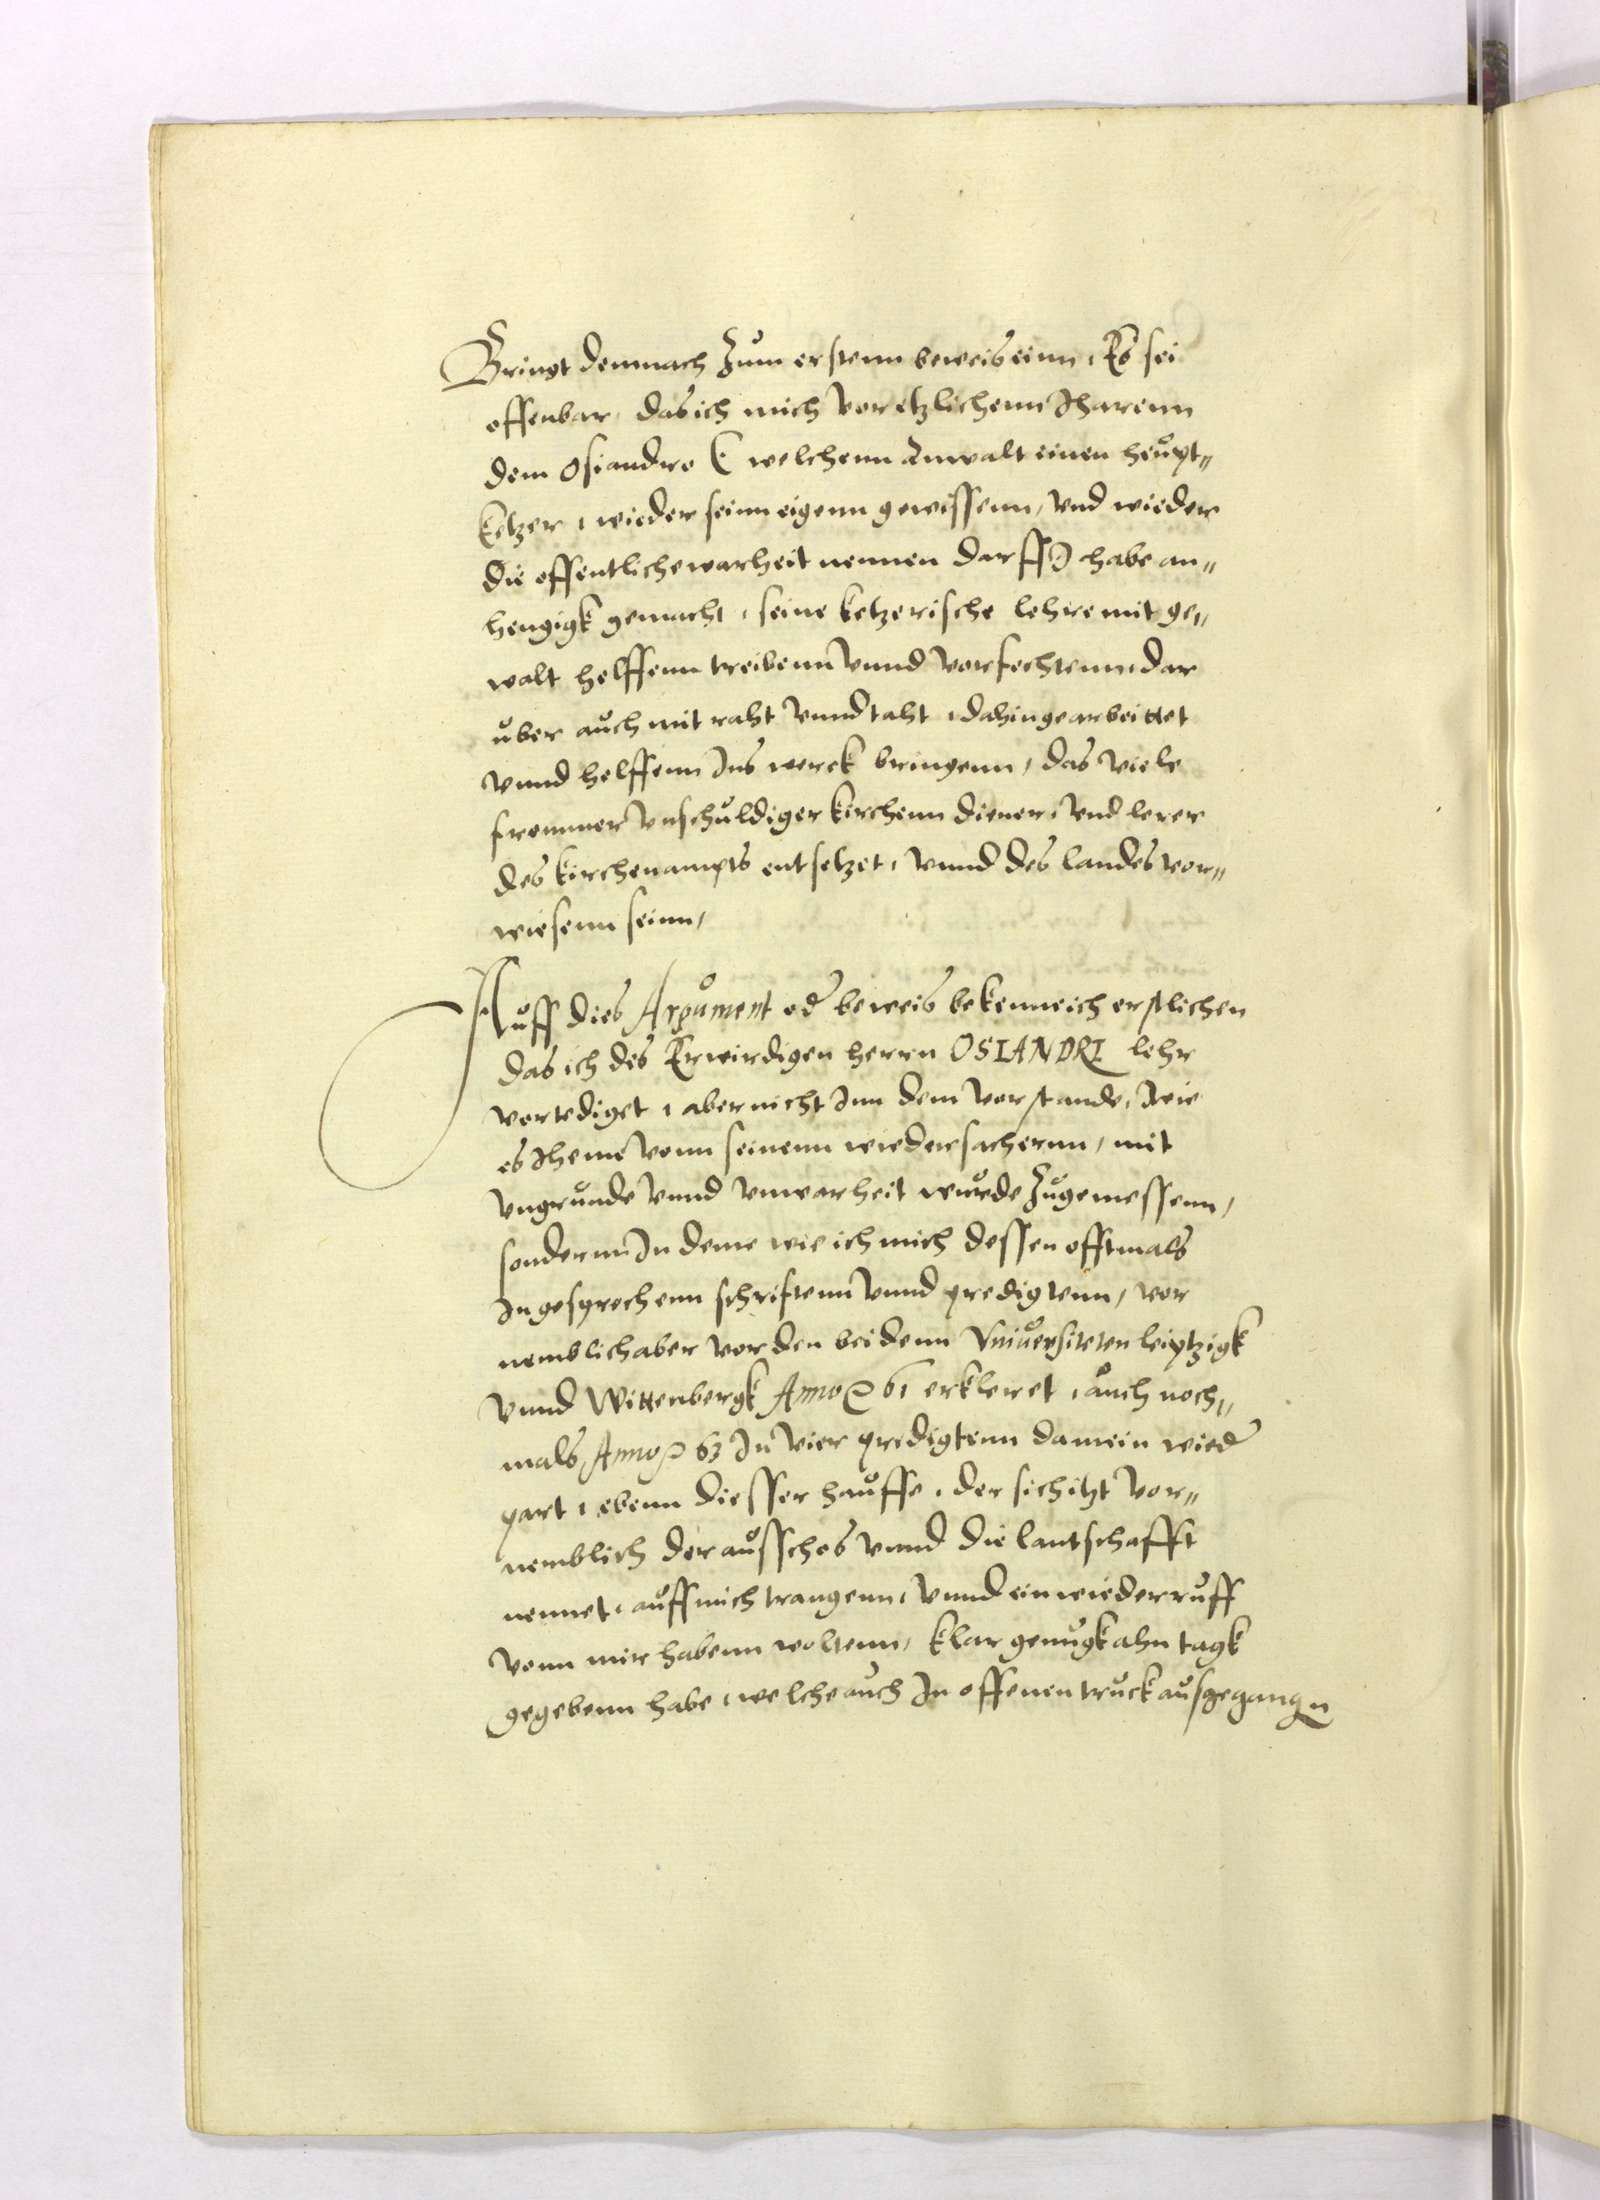 Bringt demnach Zum erstenn beweis einn, Es sei
offenbar, das ich mich vor etzlichenn Jharenn
dem Osiandro ( welchenn Anwalt einen heupt„
Ketzer, wieder seinn eigenn gewissenn, vnd wieder
die offentliche warheit nennen darff) habe an„
hengigk gemacht, seine ketzerische lehre mit ge„
walt helffenn treibenn vnnd vorfechtenn, dar
uber auch mit raht vnnd taht, dahin gearbeittet
vnnd helffenn Ins werck bringenn, das viele
frommer vnschuldiger kirchenn diener, vnd lerer
des kirchenampts entsetzet, vnnd des landes vor„
wiesenn seinn,
Auff dies Argument oder beweis bekenne ich erstlichen
das ich des Erwirdigen herrn OSIANDRI lehr
vortediget, aber nicht Inn dem vorstande, wie
es Iheme vonn seinenn wiedersachernn, mit
vngrunde vnnd vnwarheit wurde Zugemessenn,
sondernn In deme wie ich mich dessen offtmals
In gesprechenn schrifftenn vnnd predigtenn, vor
nemblich aber vor den beidenn Vniuersiteten leiptzigk
vnnd Wittenbergk Anno 61 erkleret, auch noch„
mals Anno 63 In vier predigtenn da mein wieder
part, ebenn diesser hauffe, der sich itzt vor„
nemblich der ausschos vnnd die lantschafft
nennet, auff mich trangenn, vnnd ein wiederruff
vonn mir habenn woltenn, klar genugk ahn tagk
gegebenn habe, welche auch In offenen truck ausgegangn